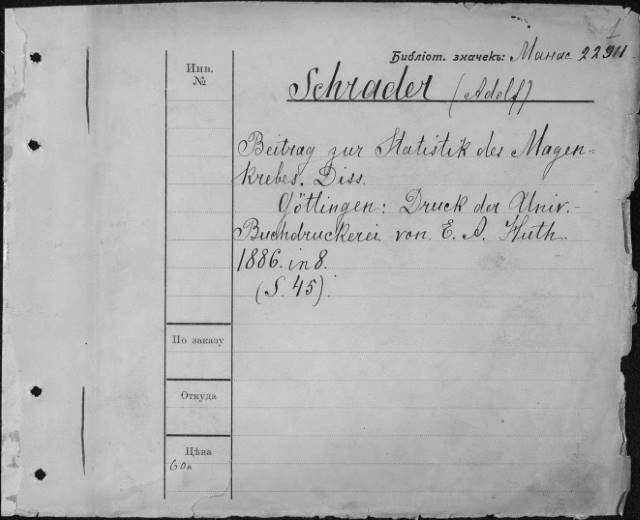 1
Библіот. значекъ: Манас 22911
Инв.
№
Schrader (Adolf)
Beitrag zur Statistik des Magen=
krebes. Diss.
Göttingen: Druck der Univ.-
Buchdruckerei von E. A. Huth.
1886. in 8.
(S. 45).
По заказу
Откуда
Цѣна
60к